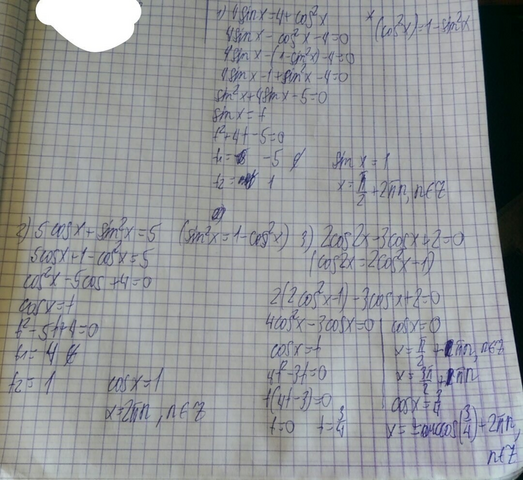 1) 4sinx=4+cos²x
*(cos²x)=1-sin²x
4sinx-cos²x-4=0
4sinx-(1-sin²x)-4=0
4sinx-1+sin²x-4=0
sin²x+4sinx-5=0
sinx=t
t²+4t-5=0
t₁= -5 ∅
t₂= 1
sinx=1
x=π/2+2πn, n∈Z
2) 5cosx+sin²x=5 (sin²x=1-cos²x)
5cosx+1-cos²x=5
cos²x-5cos+4=0
cosx=t
t²-5t+4=0
t₁=4 ∅
t₂=1
cosx=1
x=2πn, n∈Z
3) 2cos2x-3cosx+2=0
(cos2x=2cos²x-1)
2(2cos²x-1)-3cosx+2=0
4cos²x-3cosx=0
cosx=t
4t²-3t=0
t(4t-3)=0
t=0 t=3/4
cosx=0
x=π/2+πn, n∈Z
x=3π/2+πn
cosx=
x=±arccos(3/4)+2πn,
n∈Z